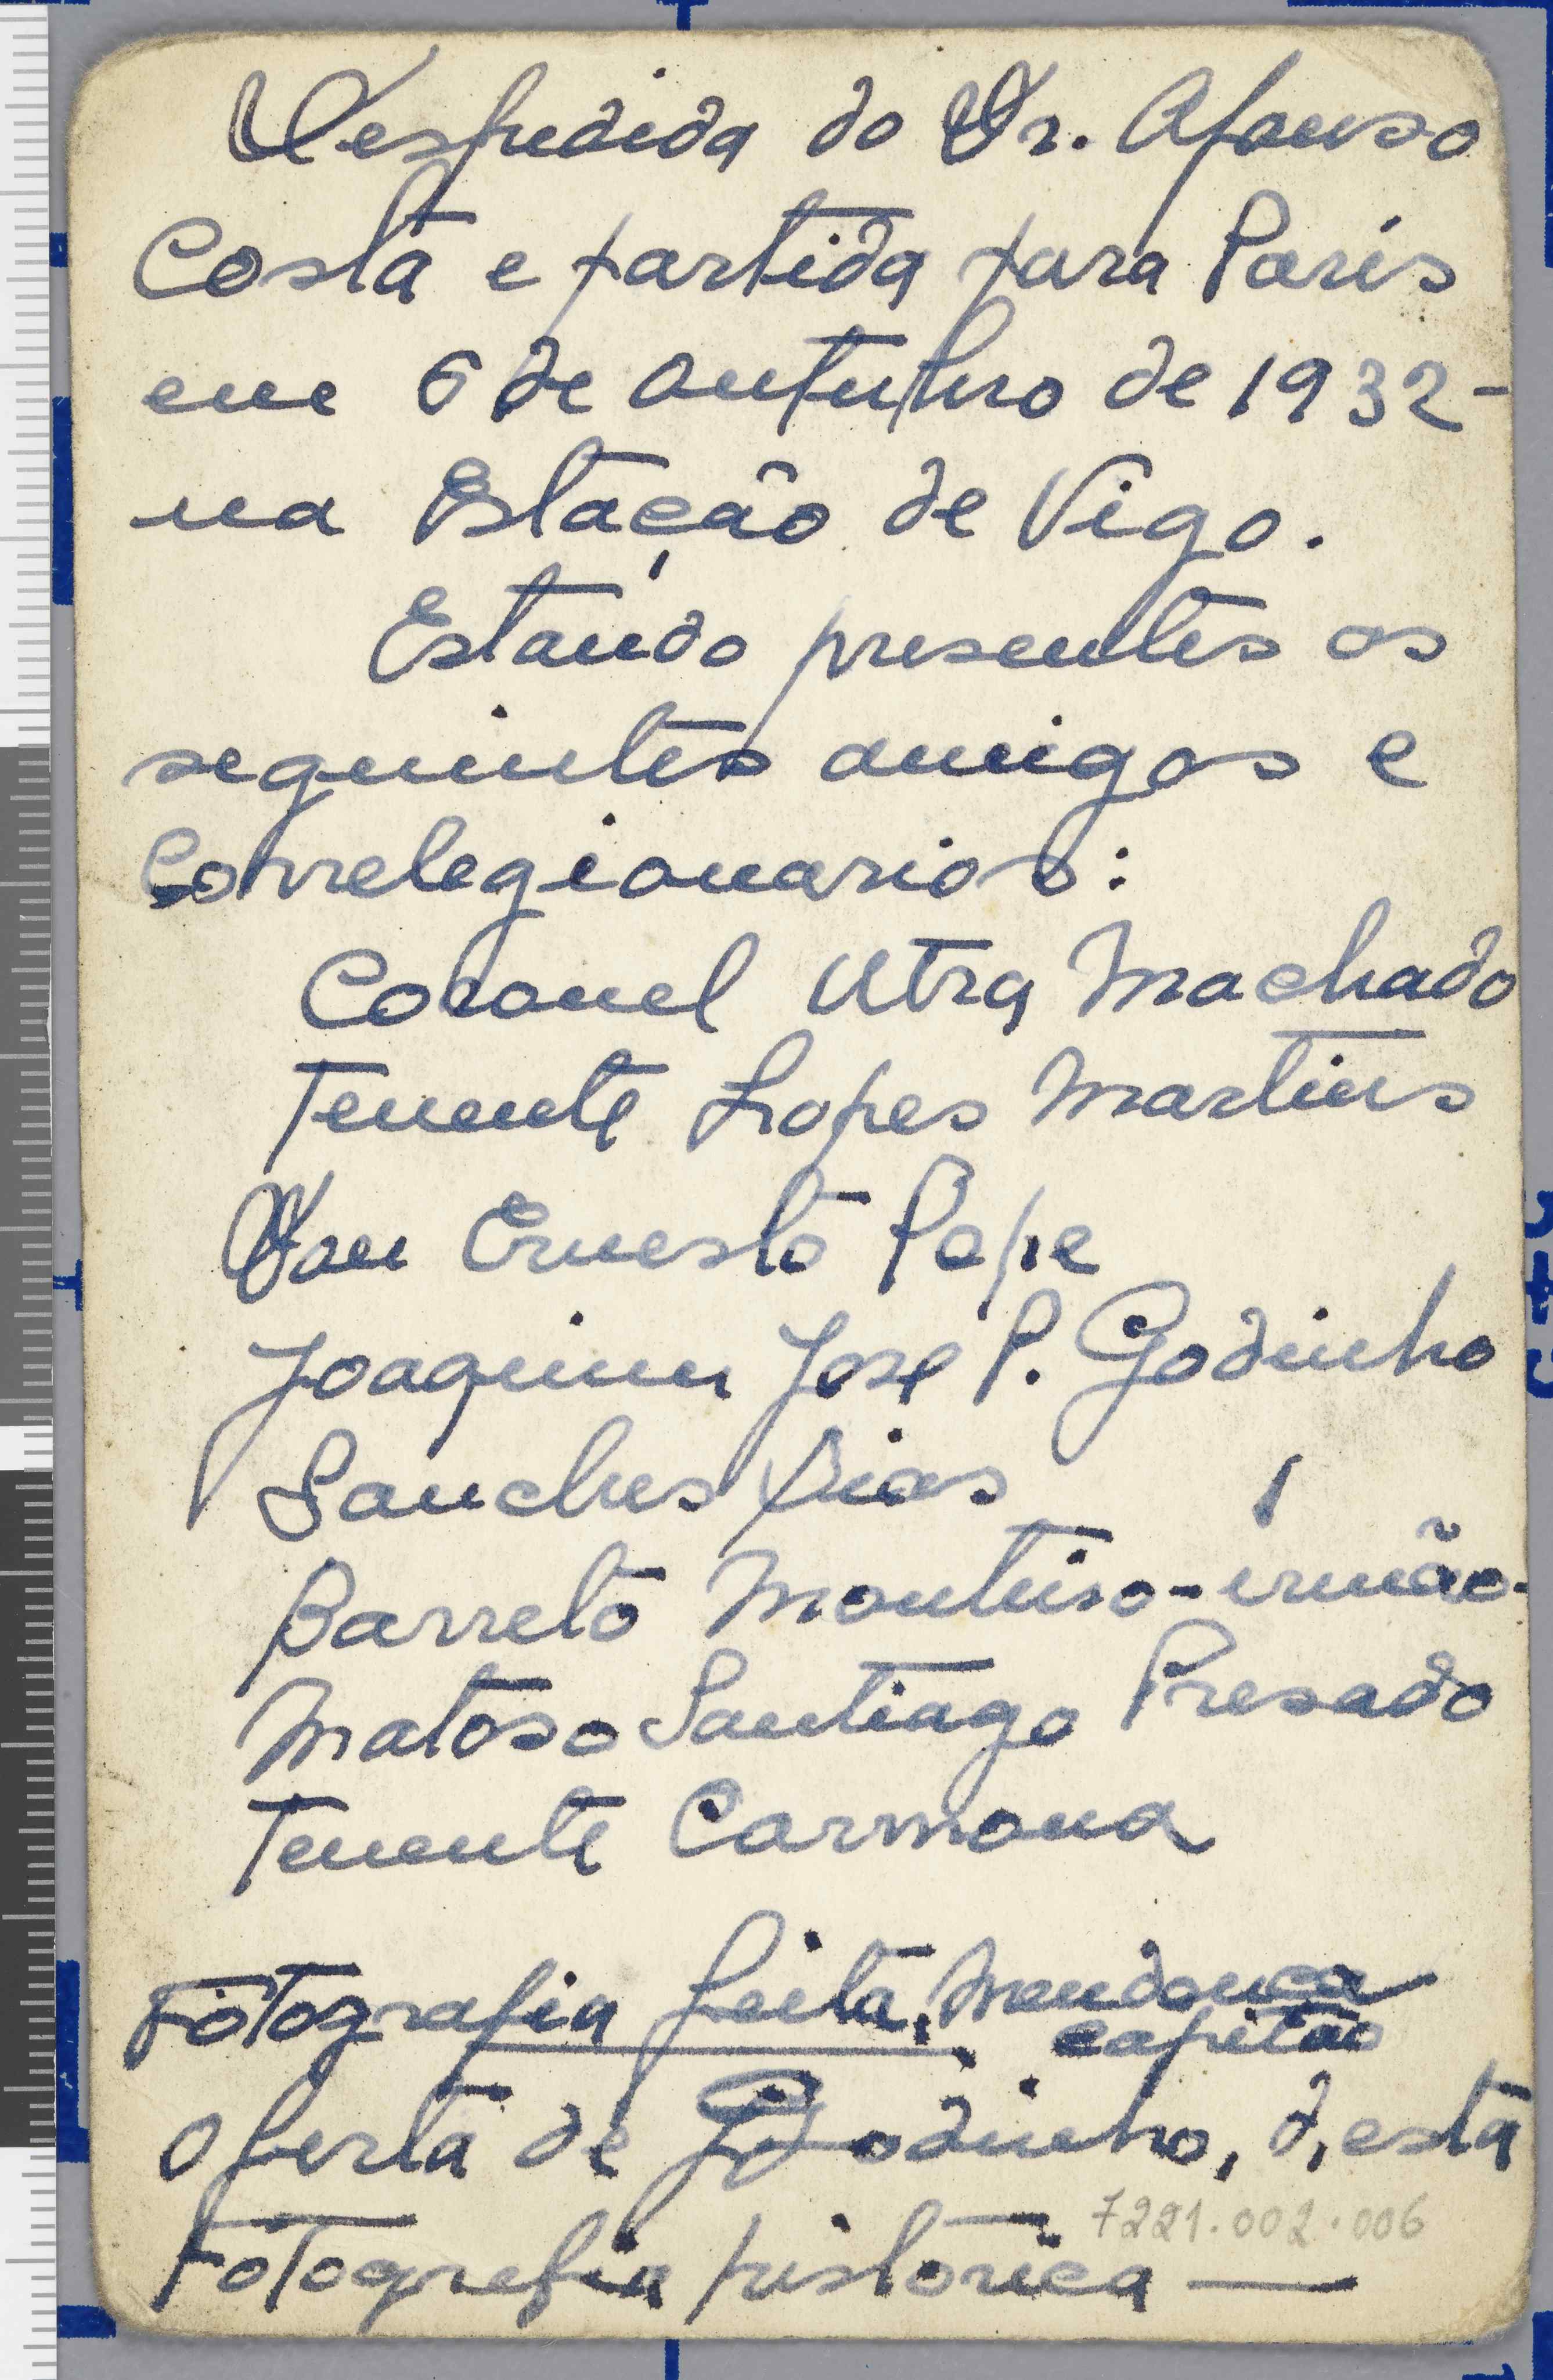 Despedida do Dr. Afonso
Costa e partida para Paris
em 6 de outubro de 1932-
na Estação de Vigo.
Estando presentes os
seguintes amigos e
Correlegionarios:
Coronel Utra Machado
Tenente Lopes Martins
Dom Ernesto Pope
Joaquim José P. Godinho
Sanches
Barreto Monteiro-irmão-
Matoso Santiago Presado
Tenente Carmona
Fotografia feita, Mendonça
capitão
Oferta de Godinho, d, esta
Fotografia historica —
7221.002.006